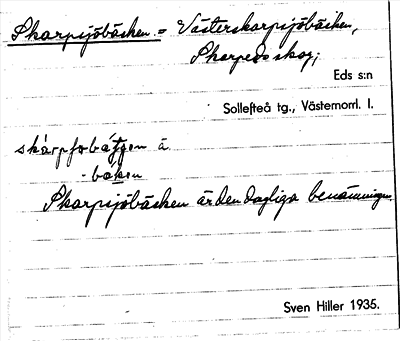 Skarpsjöbäcken. = Västerskarpsjöbäcken,
Skarpedsskog;
Eds s:n
Sollefteå tg., Västernorrl. l.
å
Skarpsjöbäcken är den dagliga benämningen.
Sven Hiller 1935.